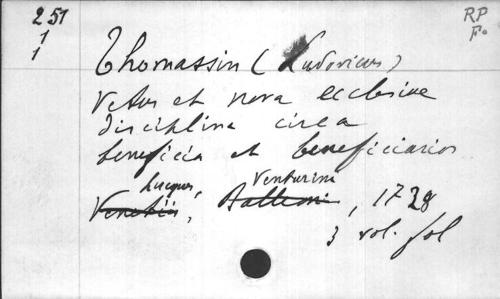 251
1
1
RP
F°
Thomassin (Ludovicus)
Vetus et nova ecclesiae
disciplina circa
beneficia et beneficiarios
Lucques, Venturini
Venetiis, Balleoni, 1728
3 vol. fol